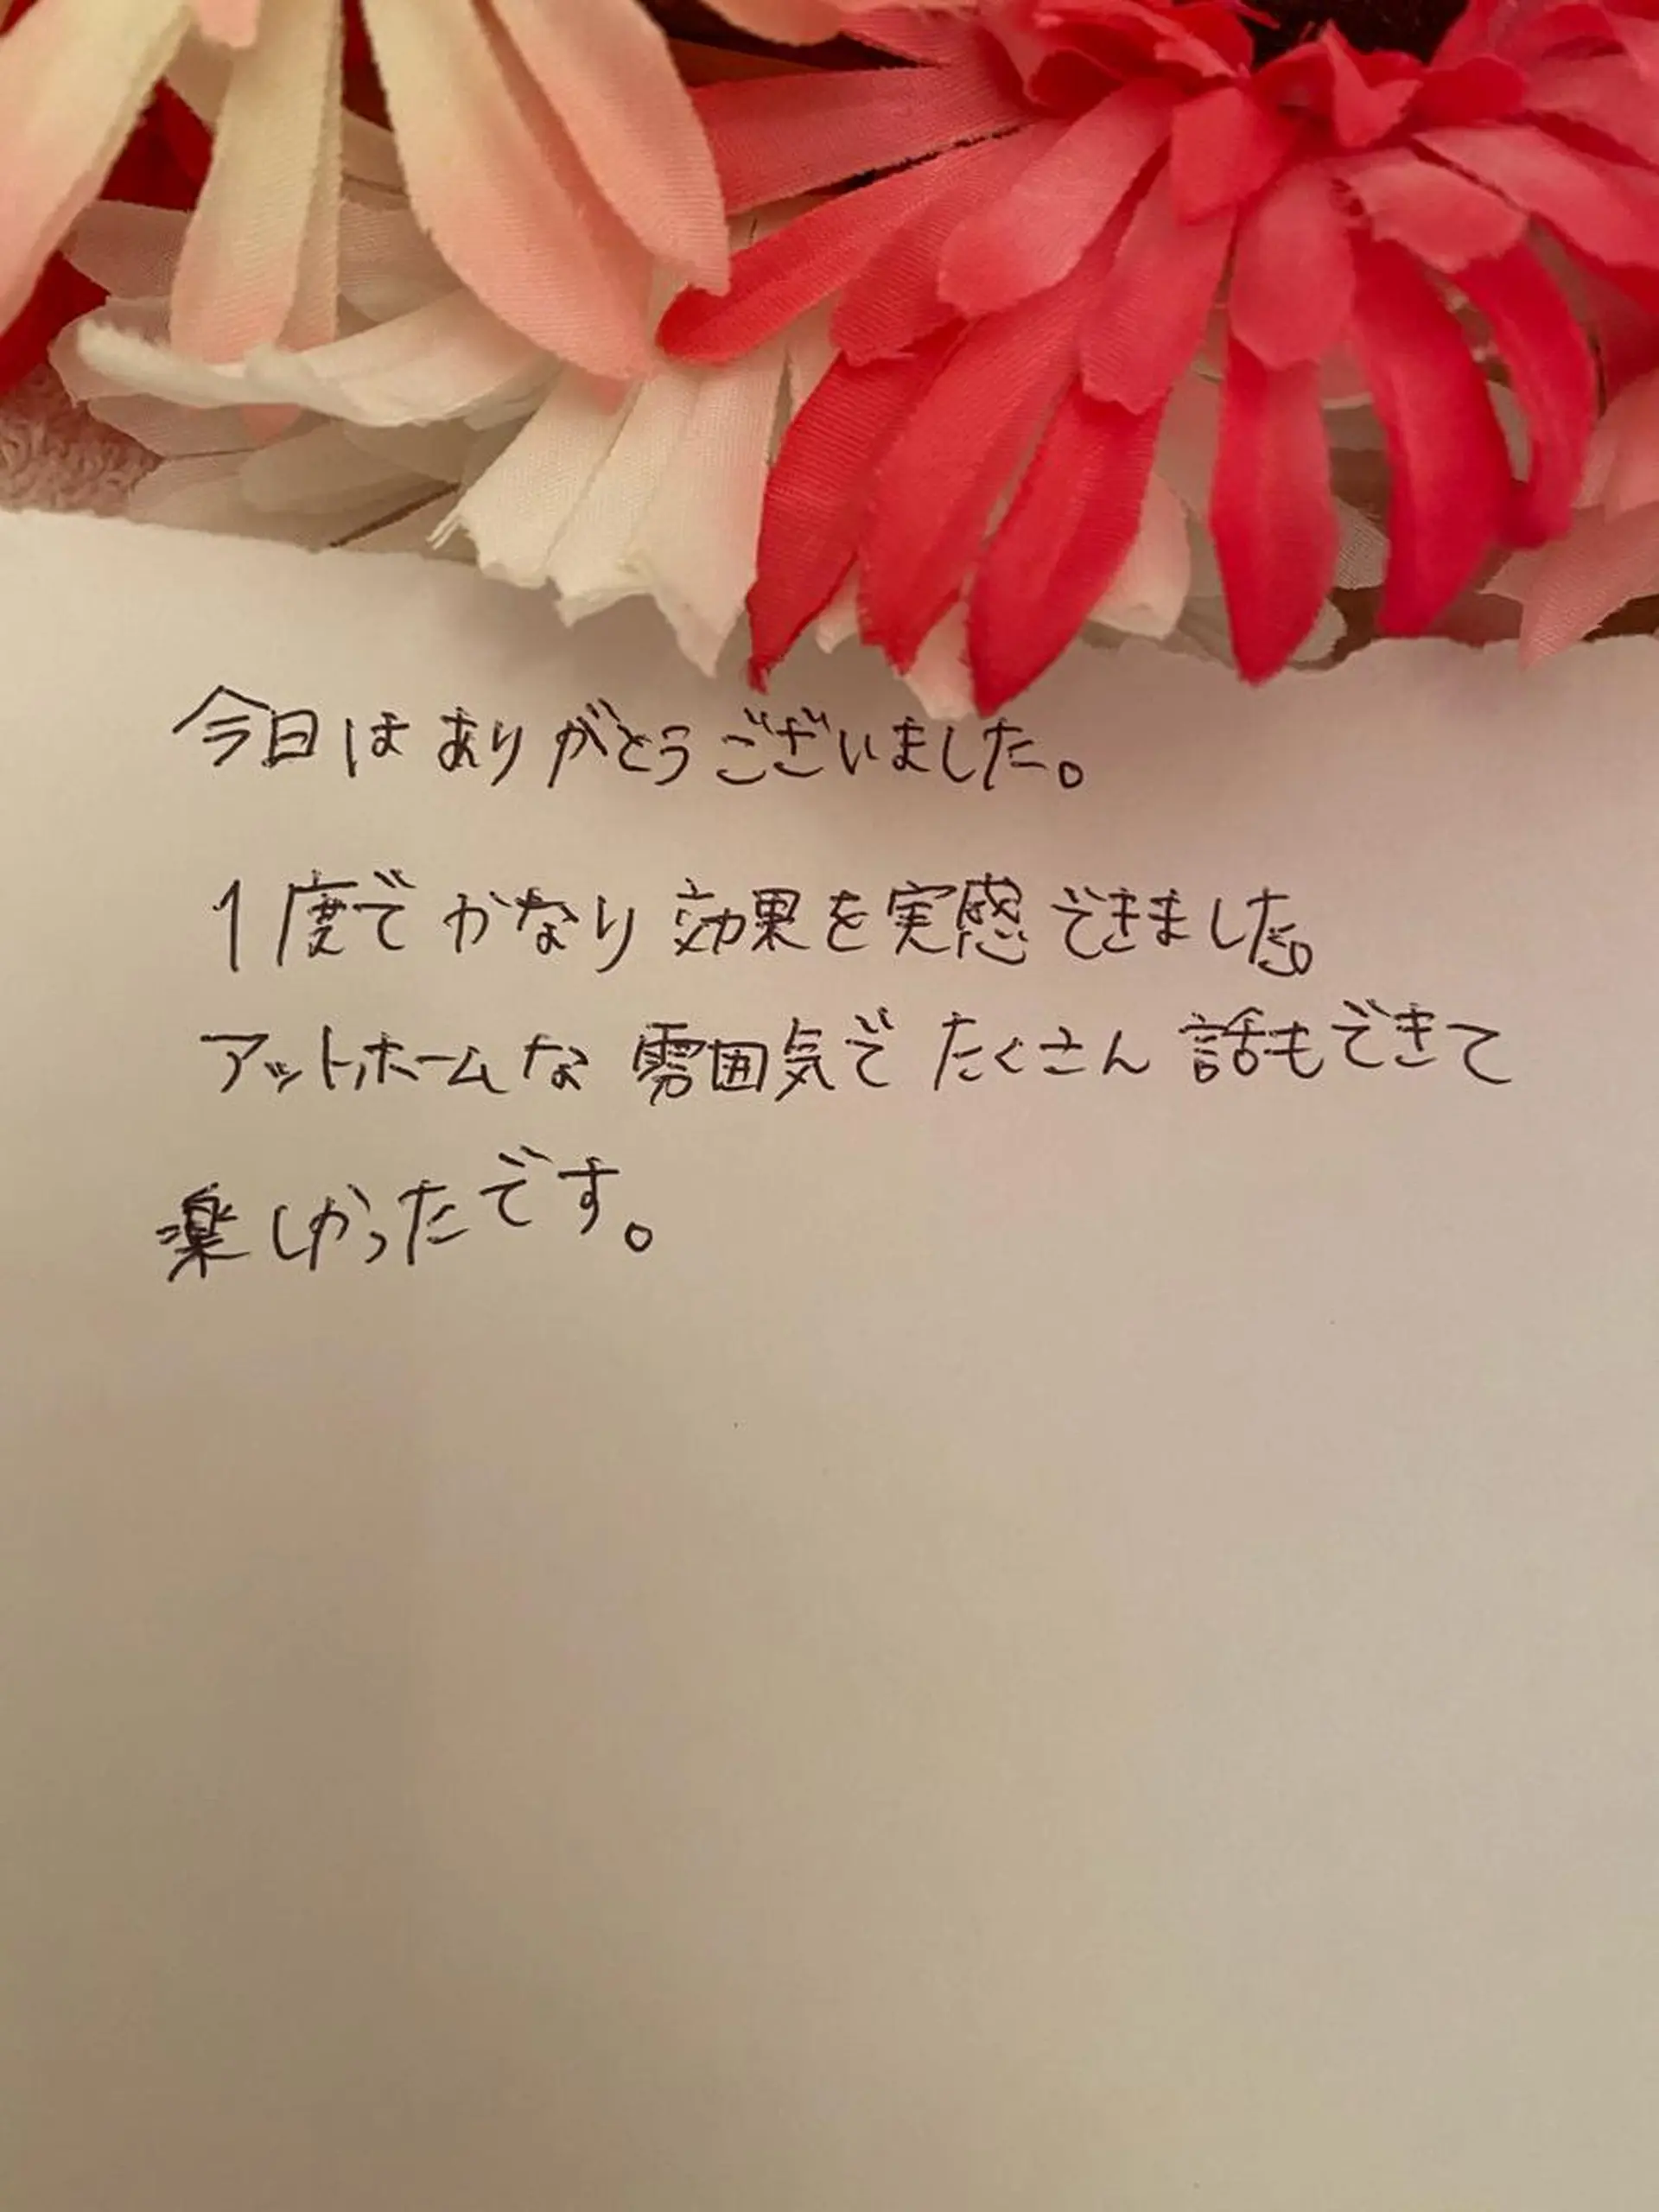 今日はありがとうございました。
1度でかなり効果を実感できました。
アットホームな雰囲気でたくさん話もできて
楽しかったです。